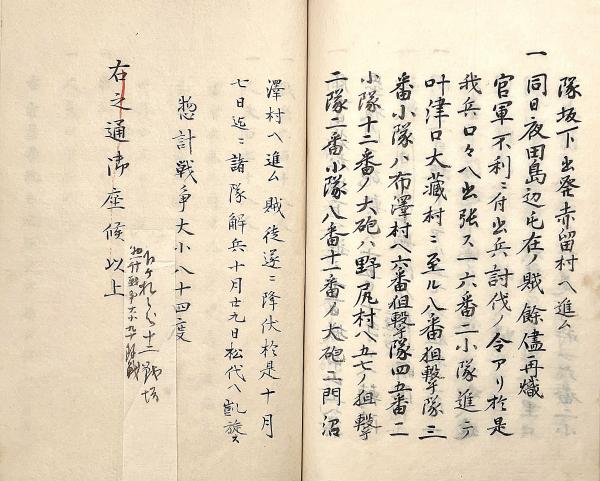 隊坂下出発赤留村ヘ進ム
一同日夜田島辺屯在ノ賊餘儘再熾
官軍不利ニ付出兵討伐ノ令アリ於是
我兵口々ヘ出張ス一六番二小隊進テ
叶津口大蔵村ニ至ル八番狙撃隊三
番小隊ハ布澤村ヘ六番狙撃隊四五番二
小隊十二番ノ大砲ハ野尻村ヘ五七ノ狙撃
二隊二番小隊八番十一番ノ大砲二門ハ沼
澤村ヘ進ム賊徒遂ニ降伏於是十月
七日迄ニ諸隊解兵十月廿九日松代ヘ凱旋ス
惣計戦争大小八十四度
右之通御座候以上